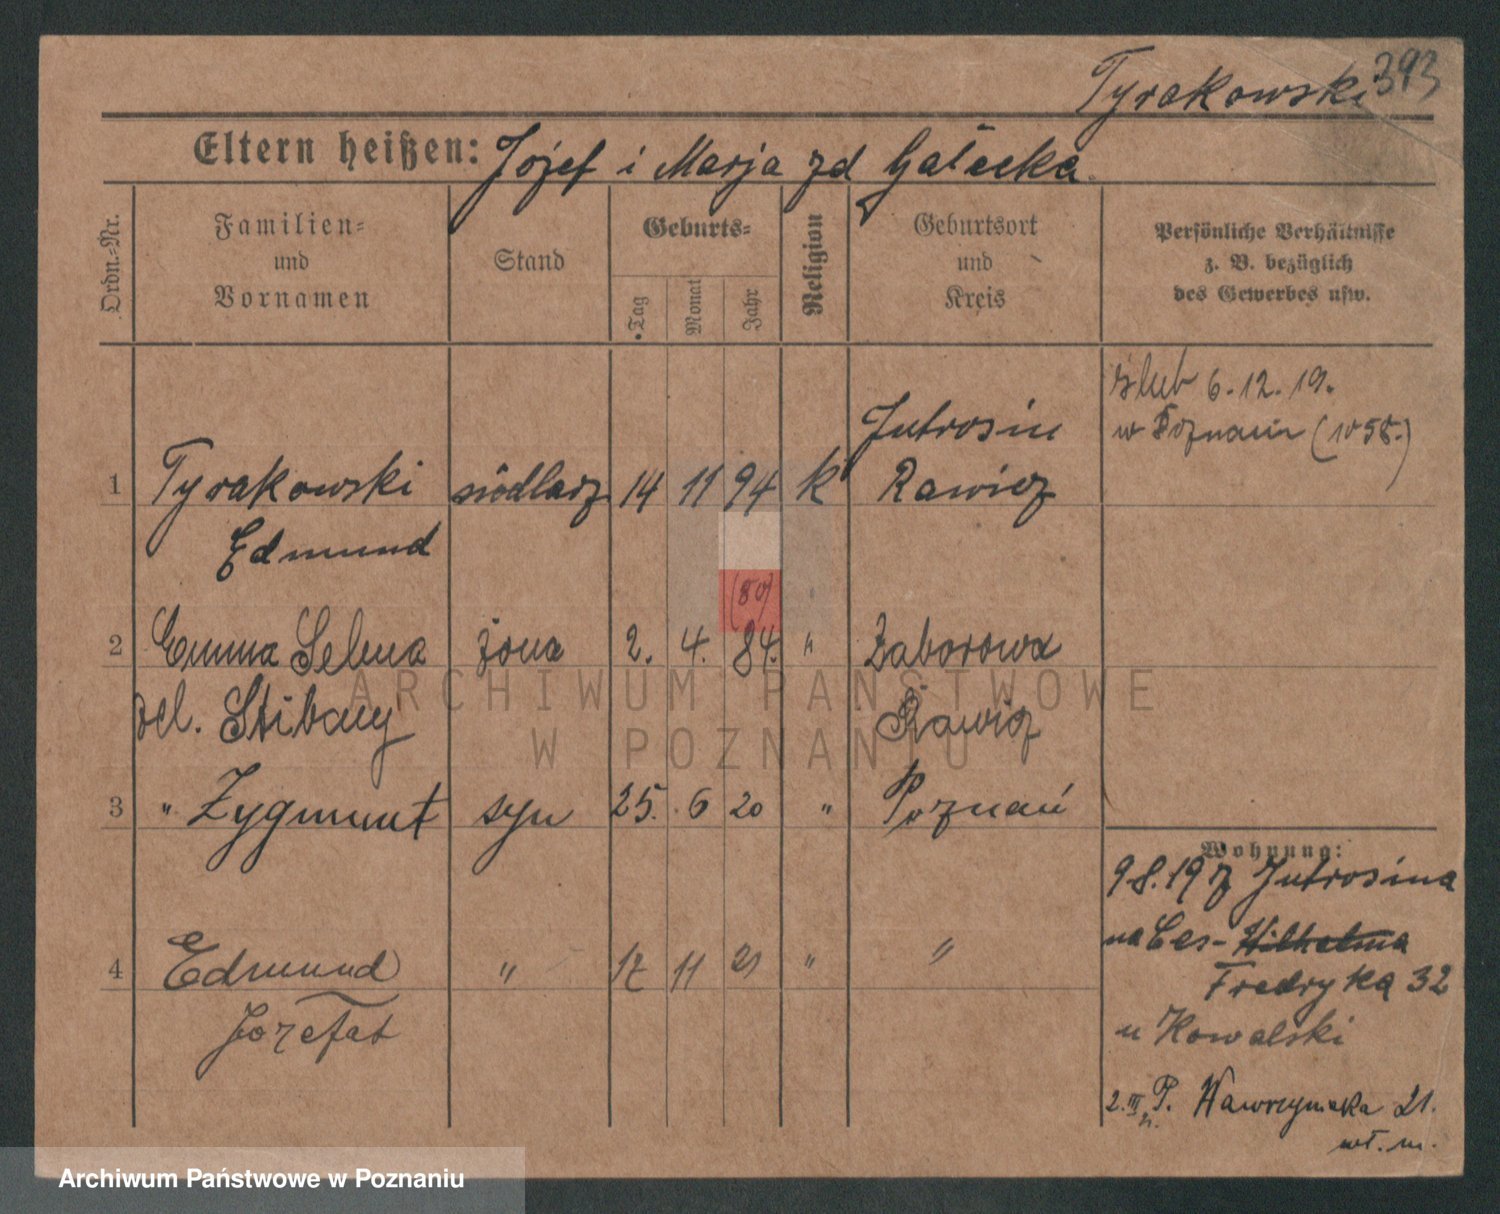 393
Tyrakowski
Eltern heißen: Józef i Marja zd Gałecka
Ordn.-Nr.
Familien-
und
Vornamen
Stand
Geburts-
Tag
Monat
Jahr
Religion
Geburtsort
und
Kreis
Persönliche Verhältnisse
z. B. bezüglich
des Gewerbes usw.
ślub 6.12.19.
w Poznaniu (1058.)
Jutrosin
1 Tyrakowski siodlarz 14 11 94 k Rawicz
Edmund
(80)
2 Emma Selma żona 2. 4. 84. " Zaborowa
zel. Stibauy Rawicz
3 " Zygmunt syn 25. 6 20 " Poznań
4 Edmund " 17 11 21 " "
Jozefat
Wohnung:
9 8.19 z Jutrosina
na Ces- Wilhelma
Fredryka 32
u Kowalski
2.III P. Wawrzyniaka 21.
wł. m.
ARCHIWUM PAŃSTWOWE
W POZNANIU
Archiwum Państwowe w Poznaniu